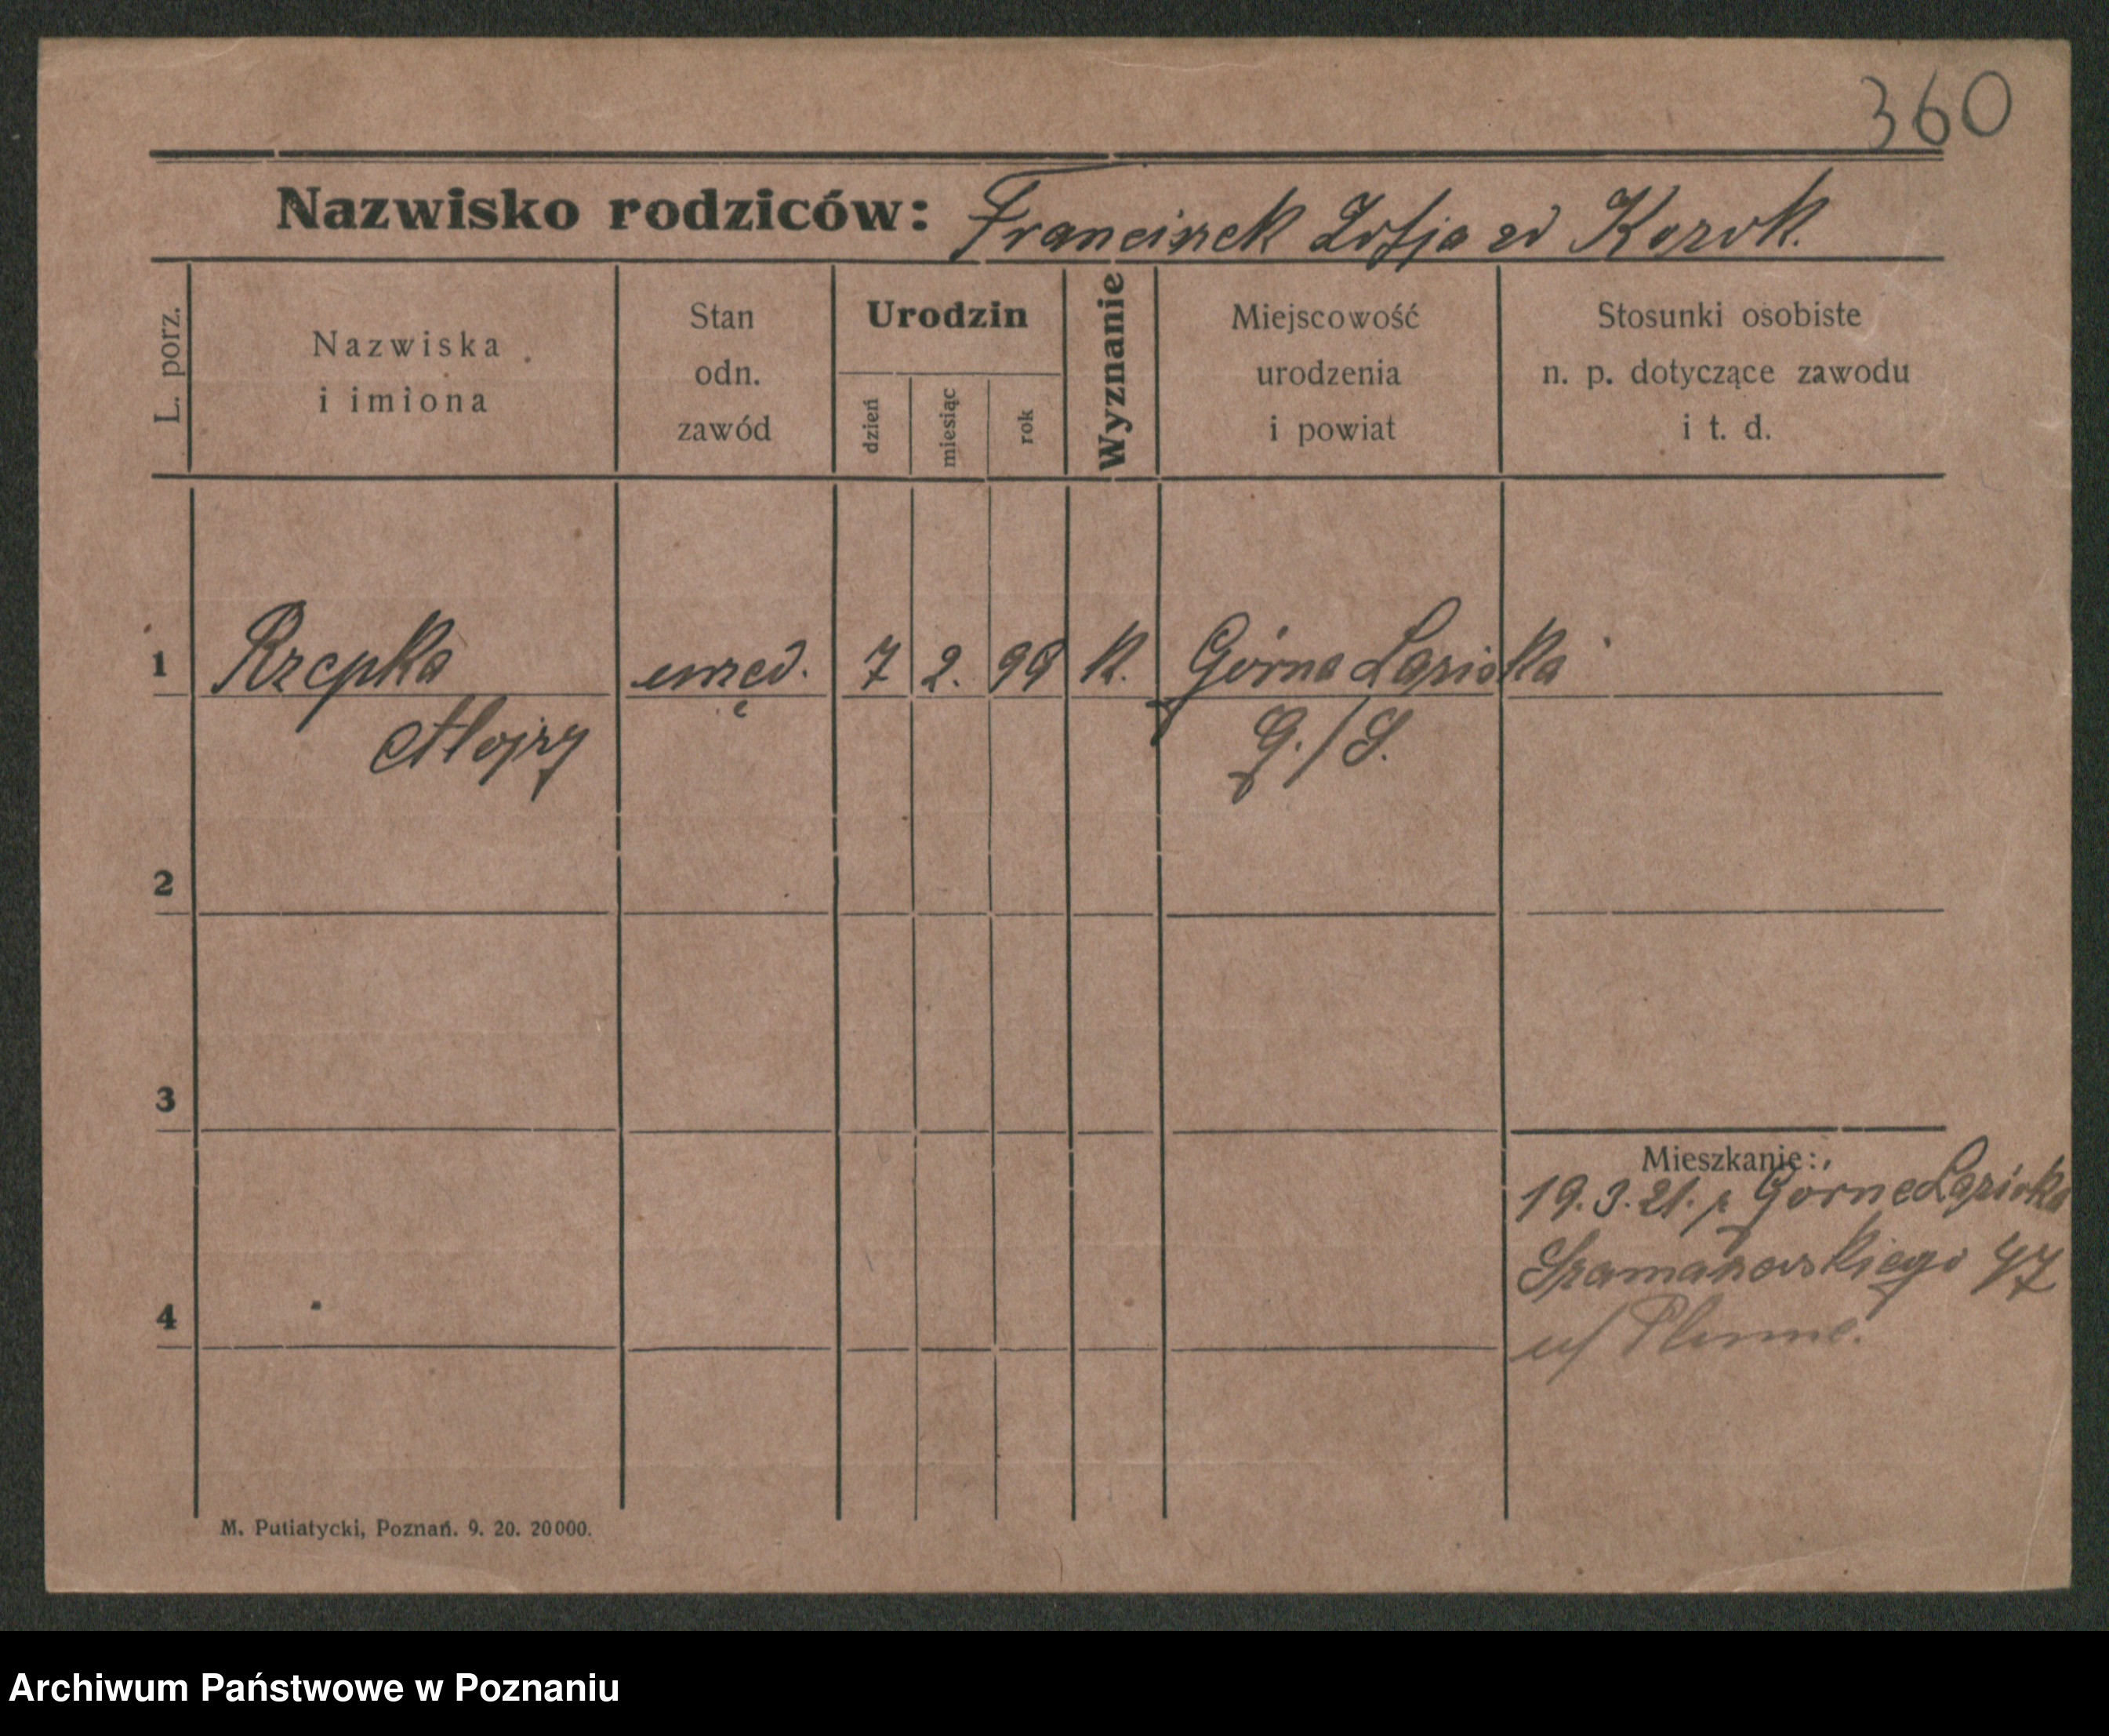 360
Nazwisko rodziców: Franciszek Zofja zd Kozok.
L. porz.
Nazwiska
i imiona
Stan
odn.
zawód
Urodzin
dzień
miesiąc
rok
Wyznanie
Miejscowość
urodzenia
i powiat
Stosunki osobiste
n. p. dotyczące zawodu
i t. d.
1 Rzepka urzęd. 7 2. 99 k. Górna Laziska
Alojzy G./S.
2
3
Mieszkanie:
19.3.21. p. Gorne Laziska
Szamarzewskiego 47
u/
4
M. Putiatycki, Poznań. 9. 20. 20000.
Archiwum Państwowe w Poznaniu